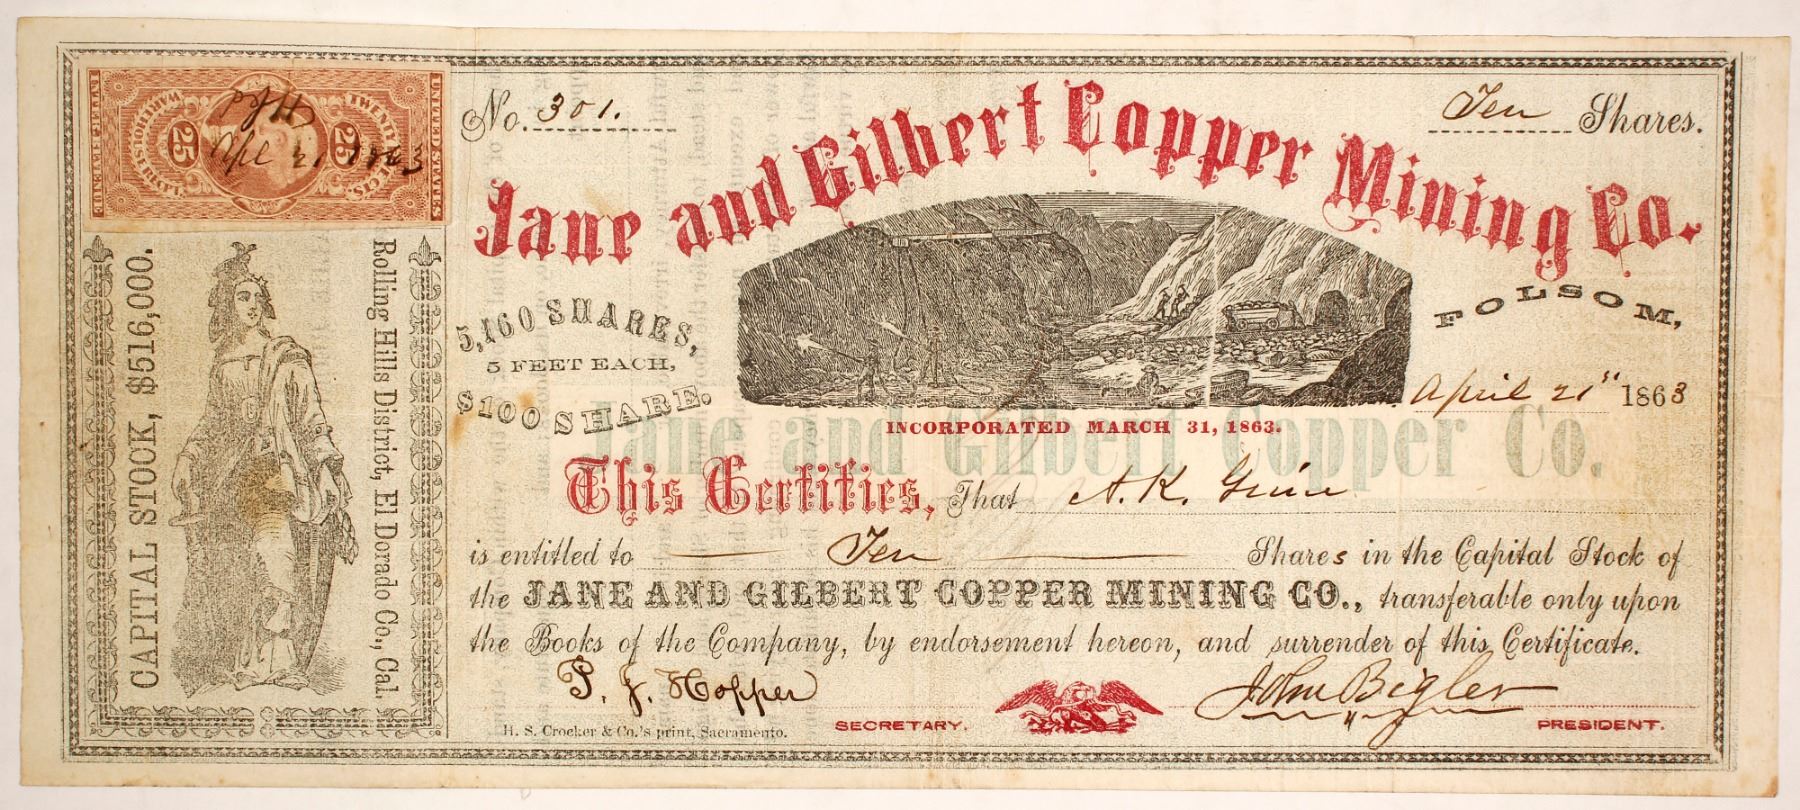 UNITED STATES
INTER. REVENUE
TWENTY FIVE CTS.
25 25
WAREHOUSE RECEIPT.
Apl 21 1863
No. 301.
Ten Shares.
Jane and Gilbert Copper Mining Co.
FOLSOM,
5,160 SHARES,
5 FEET EACH,
$100 SHARE.
April 21st 1863
INCORPORATED MARCH 31, 1863.
Jane and Gilbert Copper Co.
This Certifies, That A. K.
is entitled to Ten Shares in the Capital Stock of
the JANE AND GILBERT COPPER MINING CO., transferable only upon
the Books of the Company, by endorsement hereon, and surrender of this Certificate.
P. J. Hopper SECRETARY.
John Bigler PRESIDENT.
H. S. Crocker & Co.'s print, Sacramento.
CAPITAL STOCK, $516,000.
Rolling Hills District, El Dorado Co., Cal.